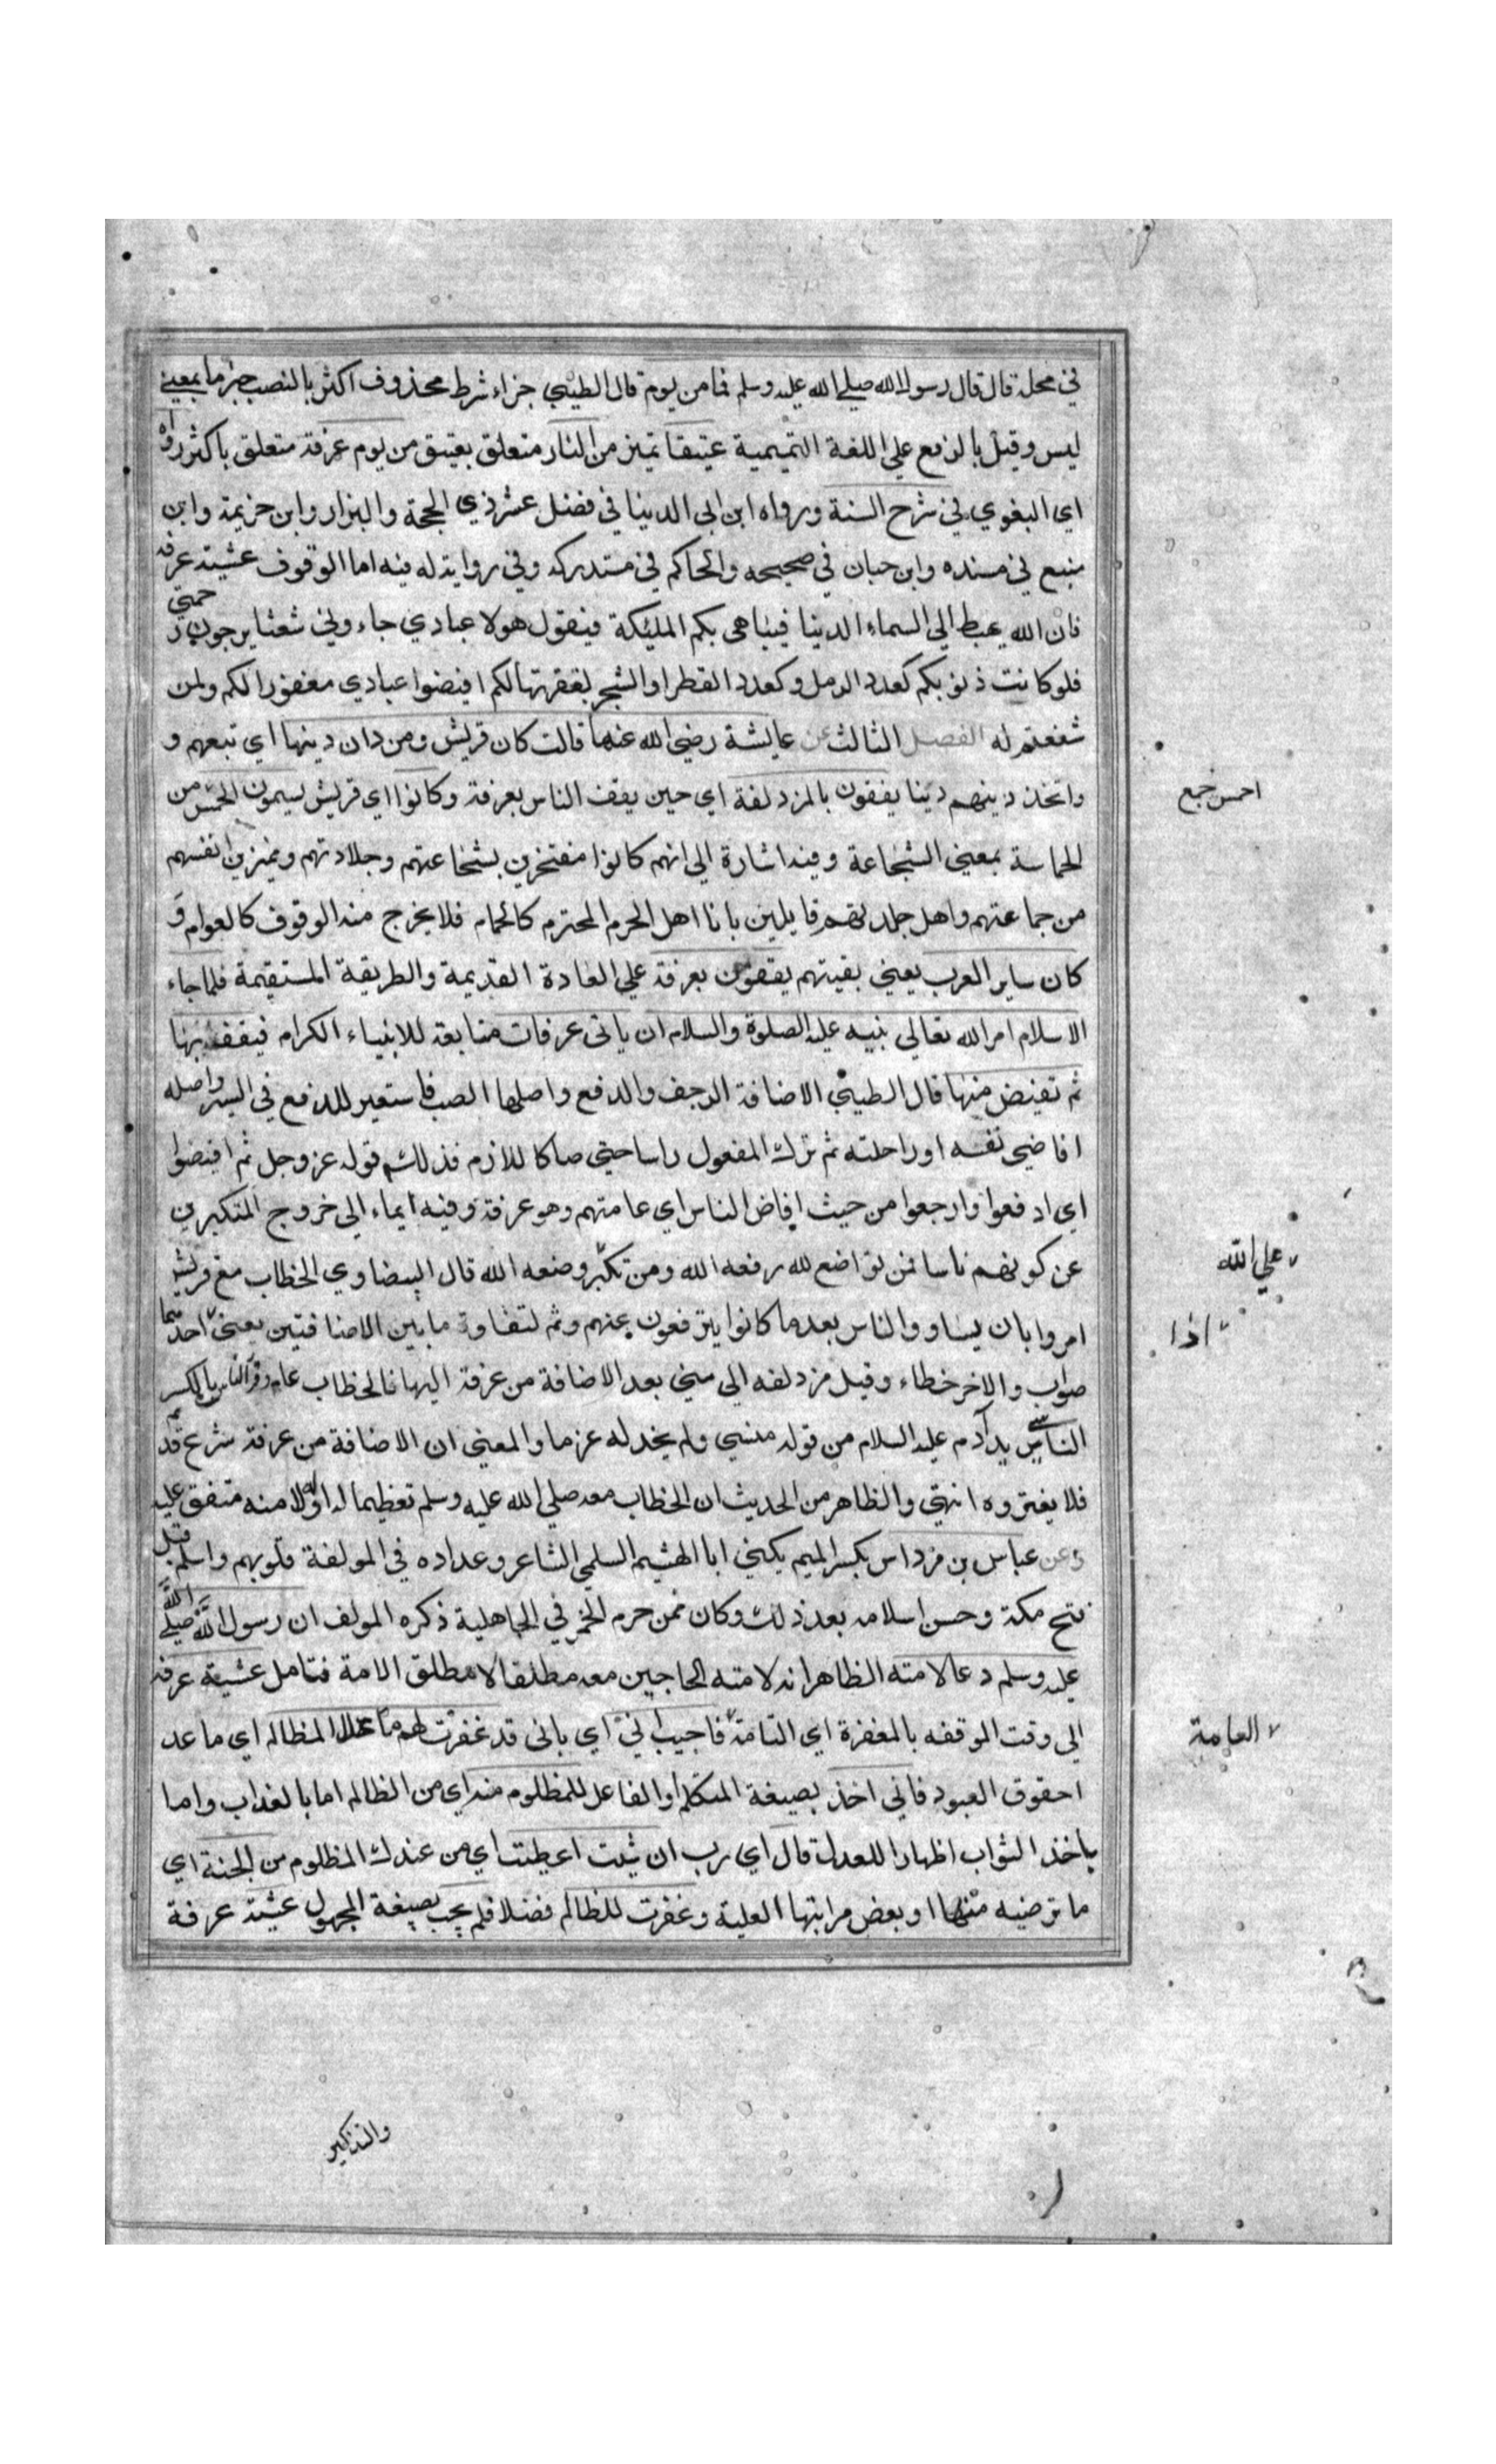 في محله قال قال رسول الله صلي الله عليه وسلم فما من يوم قال الطيبي جزاء شرط محذوف اكثر بالنصب خبر ما بمعني
ليس وقيل بالرفع علي اللغة التميمية عتيقا تميز من النار متعلق بعتيق من يوم عرفة متعلق باكثر رواه
اي البغوي في شرح السنة ورواه ابن ابي الدينا في فضل عشر ذي الحجة والبزار وابن خزيمة وابن
منيع في مسنده وابن حبان في صحيحه والحاكم في مستدركه وفي رواية له فيه اما الوقوف عشية عرفة
فان الله يهبط الي السماء الدينا فيباهي بكم المليكة فيقول هولا عبادي جاءوني شعثا يرجون رحمتي
فلو كانت ذنوبكم كعدد الرمل وكعدد القطر او الشجر لغفرتها لكم افيضوا عبادي مغفورا لكم ولمن
شفعتم له الفصل الثالث عن عايشة رضي الله عنها قالت كان قريش ومن دان دينها اي تبعهم و
واتخذ دينهم دينا يقفون بالمزدلفة اي حين يقف الناس بعرفة وكانوا اي قريش يسمون الحمس من
الحماسة بمعني الشجاعة وفيه اشارة الي انهم كانوا مفتخرين بشجاعتهم وجلادتهم ومميزين انفسهم
من جماعتهم واهل جلدتهم قايلين بانا اهل الحرم المحترم كالحمام فلا يخرج منه الوقوف كالعوام و
كان ساير العرب يعني بقيتهم يقفون بعرفة علي العادة القديمة والطريقة المستقيمة فلما جاء
الاسلام امر الله تعالي نبيه عليه الصلوة والسلام ان ياتي عرفات متابعة للانبياء الكرام فيقف بها
ثم تفيض منها قال الطيبي الاضافة الرجف والدفع واصلها الصب فاستعير للدفع في السير واصله
افاض نفسه او راحلته ثم ترك المفعول راسا حتي صار كاللازم فذلك قوله عز وجل ثم افيضوا
اي ادفعوا وارجعوا من حيث افاض الناس اي عامتهم وهو عرفة وفيه ايماء الي خروج المتكبرين
عن كونهم ناسا فمن تواضع لله رفعه الله ومن تكبر وضعه الله قال البيضاوي الخطاب مع قريش
امروا بان يساووا الناس بعد ما كانوا يترفعون عنهم وثم لتفاوة ما بين الاضافتين يعني احديهما
صواب والاخر خطاء وقيل مزدلفه الي مني بعد الاضافة من عرفة اليها فالخطاب عام وقرئ الناس بالكسر
الناسي يد ادم عليه السلام من قوله فنسي ولم يجد له عزما والمعني ان الاضافة من عرفة شرع قد
فلا يغتروه انتهي والظاهر من الحديث ان الخطاب معه صلي الله عليه وسلم تعظيما له او له لامته متفق عليه
وعن عباس بن مرداس بكسر الميم يكني ابا الهشيم السلمي الشاعر وعداده في المولفة قلوبهم واسلم قبل
فتح مكة وحسن اسلامه بعد ذلك وكان ممن حرم الخمر في الجاهلية ذكره المولف ان رسول الله صلي الله
عليه وسلم دعا لامته الظاهر انه لامته الحاجين معه مطلقا لا مطلق الامة فتامل عشية عرفة
الي وقت الموقفه بالمغفرة اي التامة فاجيب اني اي باني قد غفرت لهم ما خلا المظالم اي ما عد
احقوق العبود فاني اخذ بصيغة المتكلم او الفاعل للمظلوم منه اي من الظالم اما بالعذاب واما
باخذ الثواب اظهارا للعدل قال اي رب ان شيت اعطيت اي من عندك المظلوم من الجنة اي
ما ترضيه منها او بعض مراتبها العلية وغفرت للظالم فضلا فلم يجب بصيغة المجهول عشية عرفة
احمس جمع
علي الله
اذا
العامة
والتذكير